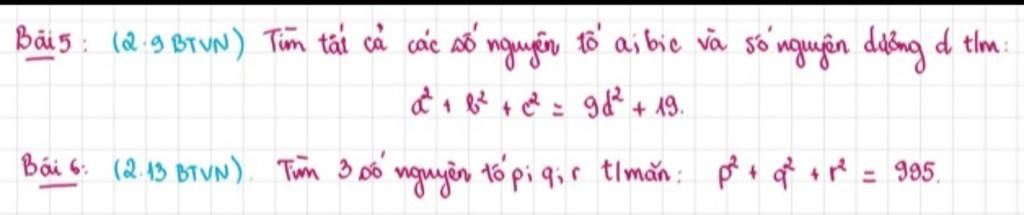 Bài 5: (2.9 BTVN) Tìm tất cả các số nguyên tố a; b; c và số nguyên dương d tlm:
a² + b² + c² = 9d² + 19.
Bài 6: (2.13 BTVN). Tìm 3 số nguyên tố p; q; r tlmãn: p² + q² + r² = 995.